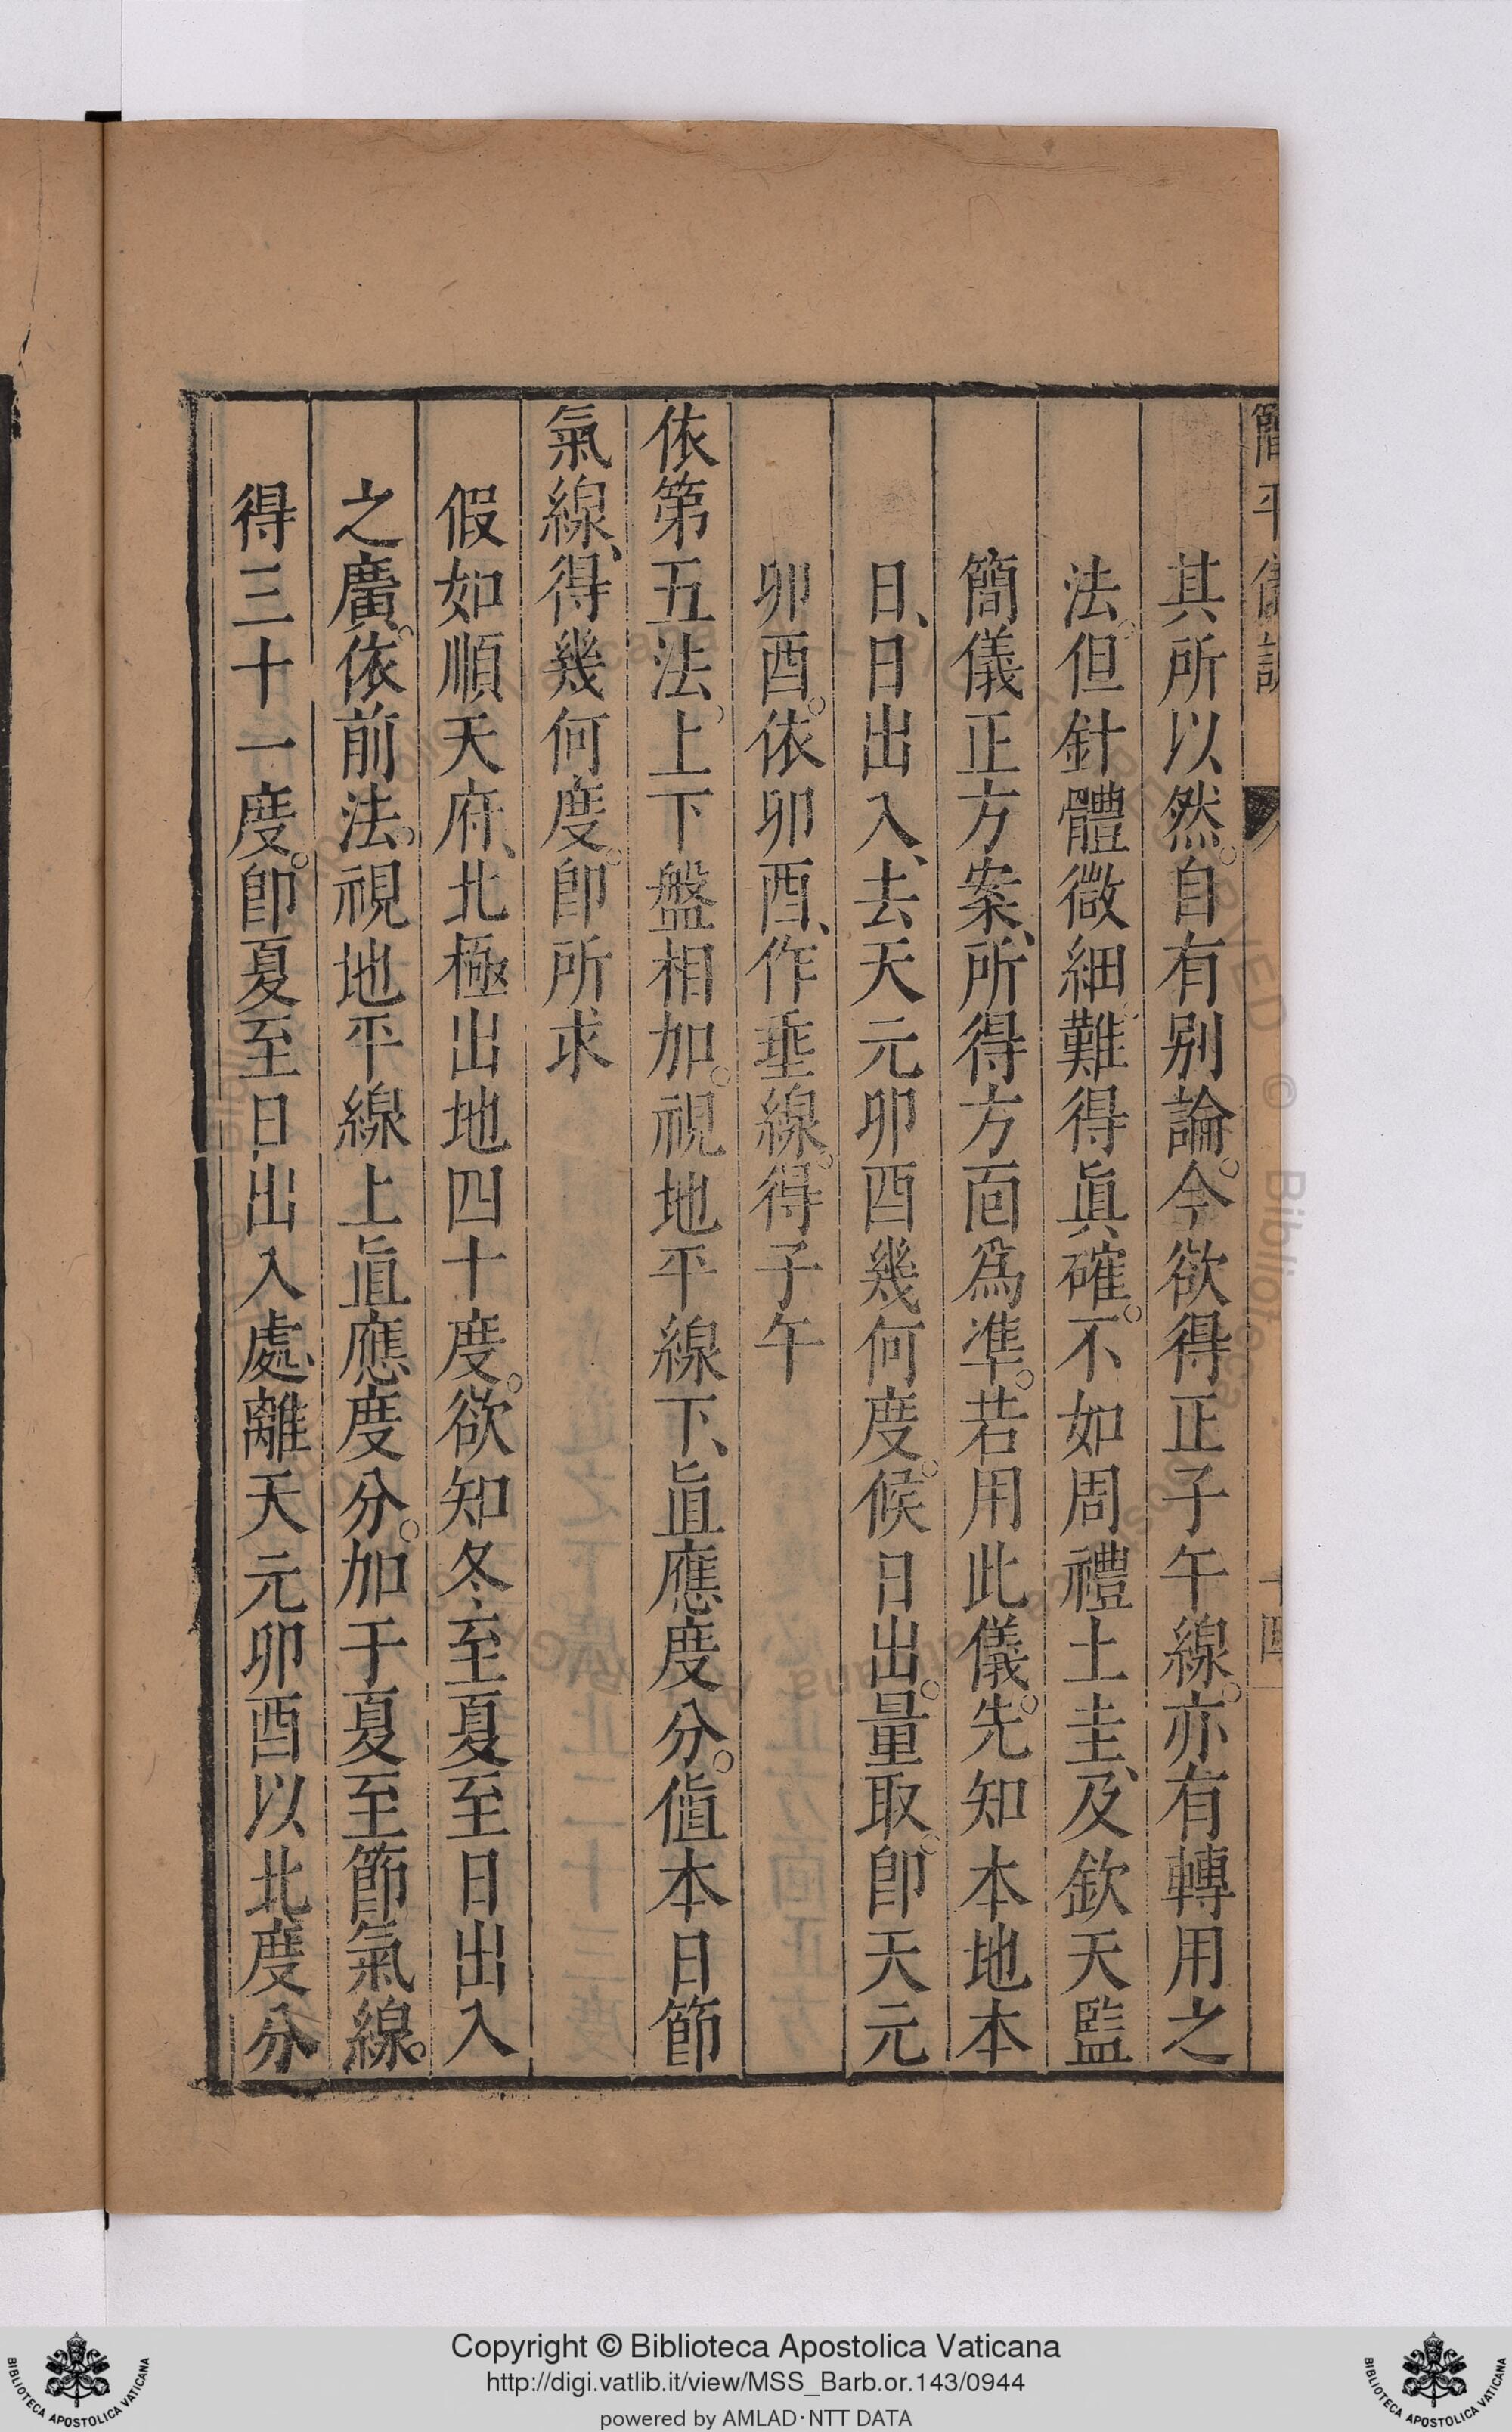 簡平儀說
十四
其所以然。自有別論。今欲得正子午線。亦有轉用之
法。但針體微細、難得眞確。不如周禮土圭、及欽天監
簡儀正方案、所得方面爲準。若用此儀。先知本地本
日、日出入、去天元卯酉幾何度。候日出。量取。卽天元
卯酉。依卯酉、作垂線。得子午
依第五法、上下盤相加。視地平線下、直應度分。値本日節
氣線、得幾何度。卽所求
假如順天府、北極出地四十度。欲知冬至夏至日出入
之廣。依前法。視地平線上直應度分。加于夏至節氣線。
得三十一度。卽夏至日出入處、離天元卯酉以北度分
Copyright © Biblioteca Apostolica Vaticana
http://digi.vatlib.it/view/MSS_Barb.or.143/0944
powered by AMLAD·NTT DATA
BIBLIOTECA APOSTOLICA VATICANA
BIBLIOTECA APOSTOLICA VATICANA